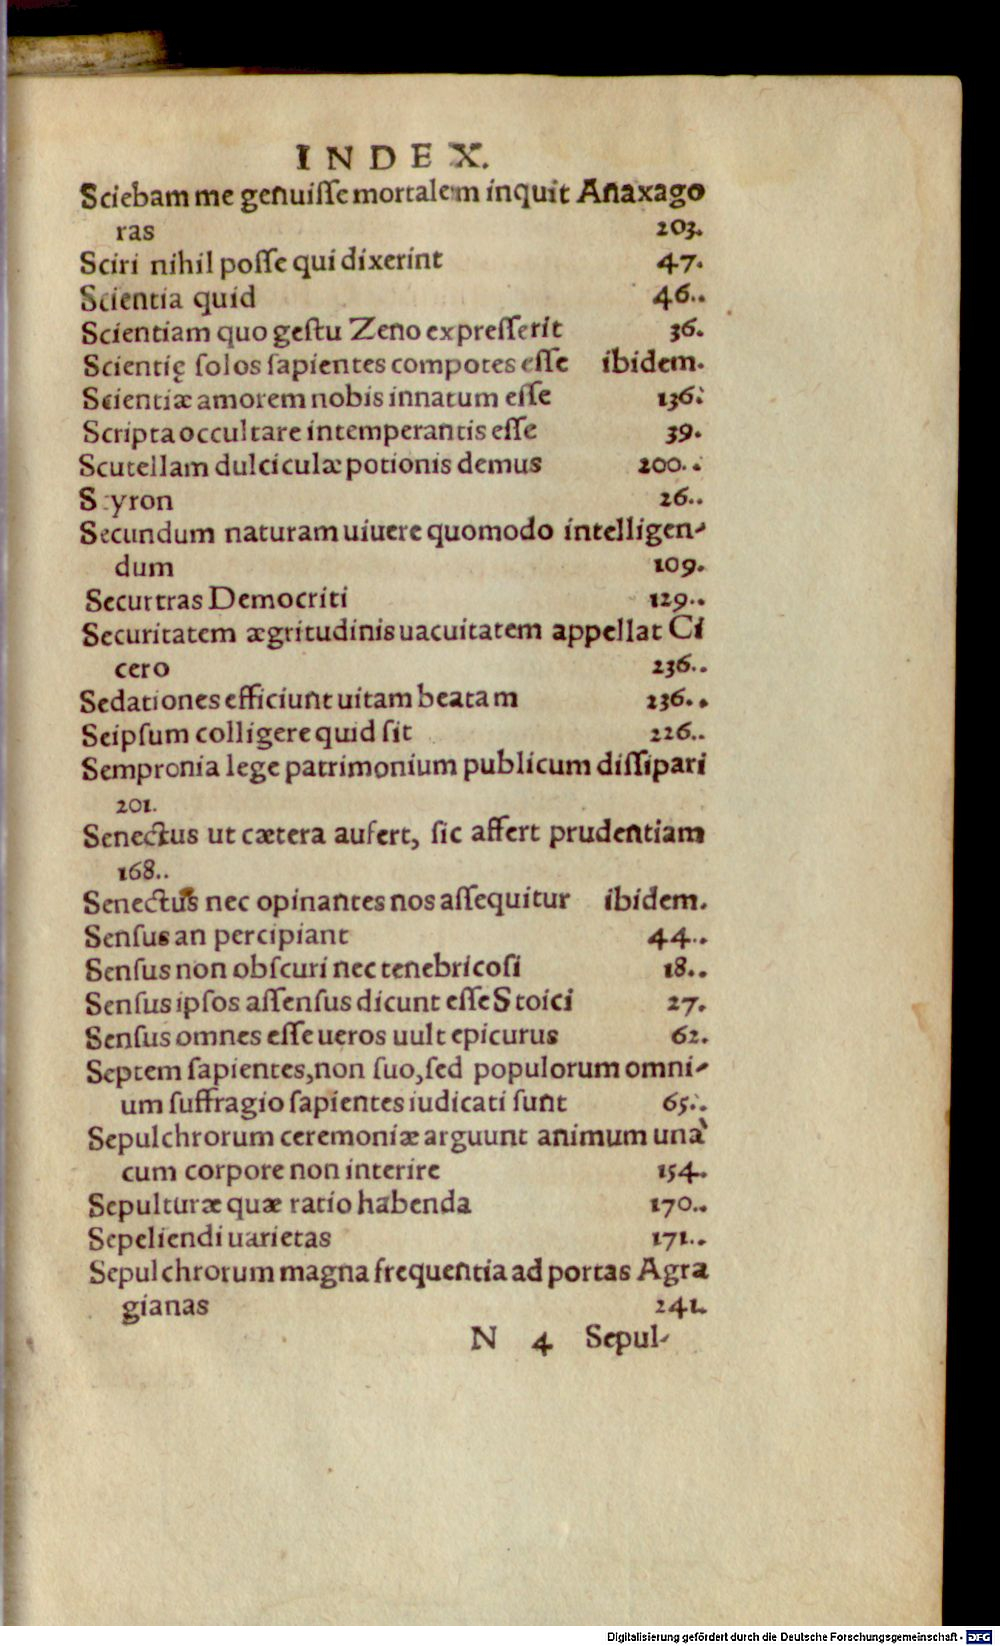 INDEX.
Sciebam me genuiſſe mortalem inquit Anaxago
ras 203.
Sciri nihil poſſe qui dixerint 47.
Scientia quid 46..
Scientiam quo geſtu Zeno expreſſerit 36.
Scientię ſolos ſapientes compotes eſſe ibidem.
Scientiæ amorem nobis innatum eſſe 136.
Scripta occultare intemperantis eſſe 39.
Scutellam dulciculæ potionis demus 200..
S yron 26..
Secundum naturam uiuere quomodo intelligen-
dum 109.
Securtras Democriti 129..
Securitatem ægritudinis uacuitatem appellat Ci
cero 236..
Sedationes efficiunt uitam beatam 236..
Seipſum colligere quid ſit 226..
Sempronia lege patrimonium publicum diſſipari
201.
Senectus ut cætera aufert, ſic affert prudentiam
168..
Senectus nec opinantes nos aſſequitur ibidem.
Senſus an percipiant 44..
Senſus non obſcuri nec tenebricoſi 18..
Senſus ipſos aſſenſus dicunt eſſe Stoici 27.
Senſus omnes eſſe ueros uult epicurus 62.
Septem ſapientes, non ſuo, ſed populorum omni-
um ſuffragio ſapientes iudicati ſunt 65..
Sepulchrorum ceremoniæ arguunt animum unà
cum corpore non interire 154.
Sepulturæ quæ ratio habenda 170..
Sepeliendi uarietas 171..
Sepulchrorum magna frequentia ad portas Agra
gianas 241.
N 4 Sepul-
Digitalisierung gefördert durch die Deutsche Forschungsgemeinschaft - DFG